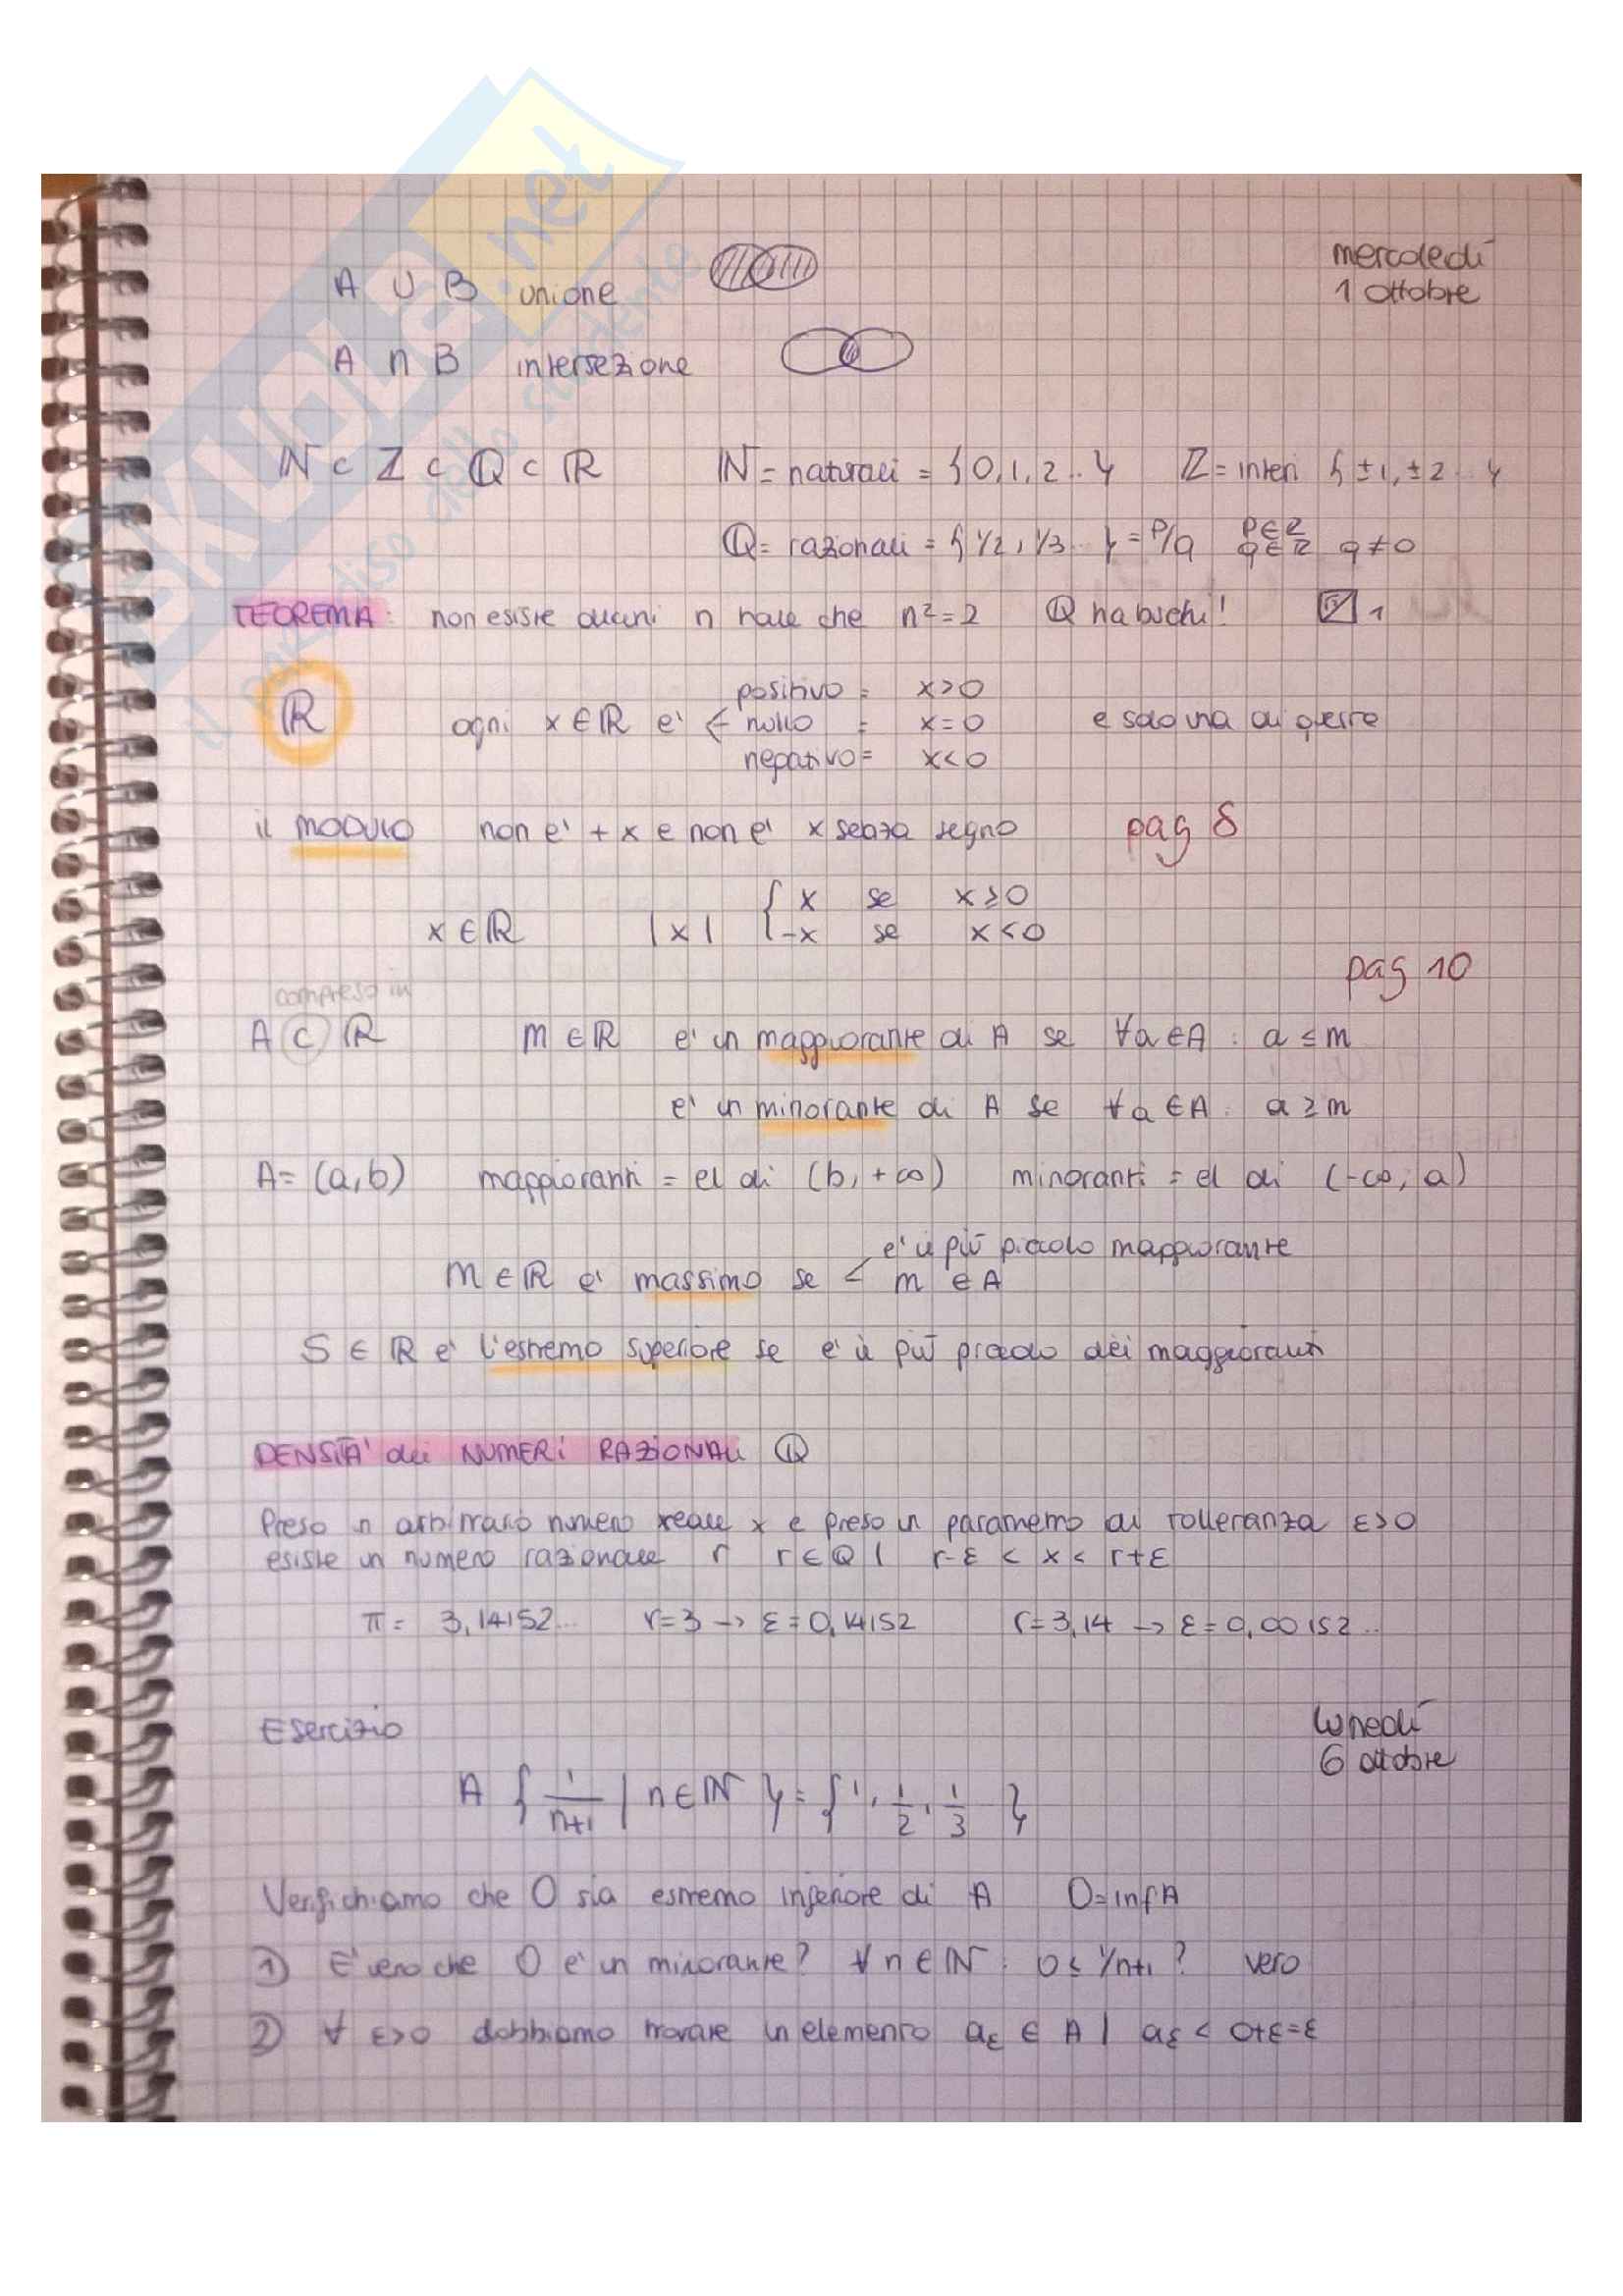 mercoledì
1 ottobre
A ∪ B unione
A ∩ B intersezione
ℕ ⊂ ℤ ⊂ ℚ ⊂ ℝ ℕ = naturali = {0, 1, 2 .. } ℤ = interi { ±1, ±2 .. }
ℚ = razionali = { 1/2, 1/3 .. } = p/q p ∈ ℤ q ∈ ℤ q ≠ 0
TEOREMA: non esiste alcun n tale che n² = 2 ℚ ha buchi! 1
ℝ ogni x ∈ ℝ e' < positivo = x > 0
nullo = x = 0 e solo una di queste
negativo = x < 0
il MODULO non e' + x e non e' x senza segno pag 8
x ∈ ℝ |x| { x se x ≥ 0
-x se x < 0
pag 10
compreso in
A ⊂ ℝ m ∈ ℝ e' un maggiorante di A se ∀a ∈ A : a ≤ m
e' un minorante di A se ∀a ∈ A : a ≥ m
A = (a, b) maggioranti = el di (b, +∞) minoranti = el di (-∞; a)
m ∈ ℝ e' massimo se < e' il più piccolo maggiorante
m ∈ A
S ∈ ℝ e' l'estremo superiore se e' il più piccolo dei maggioranti
DENSITA' dei NUMERI RAZIONALI ℚ
Preso un arbitrario numero reale x e preso un parametro di tolleranza ε>0
esiste un numero razionale r r ∈ ℚ | r-ε < x < r+ε
π = 3,14152... r=3 → ε = 0,14152 r=3,14 → ε = 0,00152..
lunedì
6 ottobre
Esercizio
A { 1/n+1 | n ∈ ℕ } = { 1, 1/2, 1/3 }
Verifichiamo che 0 sia estremo inferiore di A 0 = inf A
1) E' vero che 0 e' un minorante? ∀ n ∈ ℕ : 0 ≤ 1/n+1 ? vero
2) ∀ ε>0 dobbiamo trovare un elemento aε ∈ A | aε < 0+ε=ε
SKUOLA.net
il paradiso dello studente